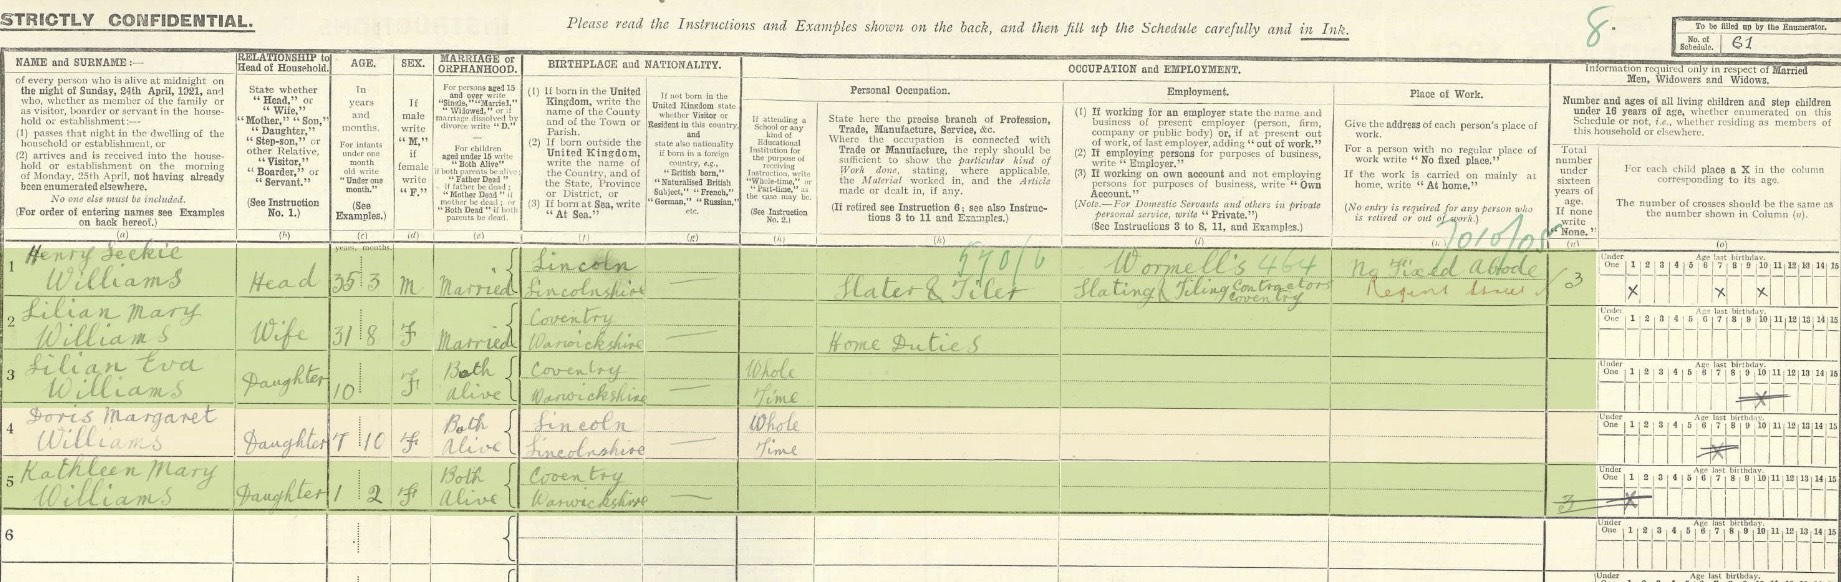 STRICTLY CONFIDENTIAL.
Please read the Instructions and Examples shown on the back, and then fill up the Schedule carefully and in Ink.
8.
To be filled up by the Enumerator.
No. of Schedule. 61
NAME and SURNAME :—
of every person who is alive at midnight on
the night of Sunday, 24th April, 1921, and
who, whether as member of the family or
as visitor, boarder or servant in the house-
hold or establishment:—
(1) passes that night in the dwelling of the
household or establishment, or
(2) arrives and is received into the house-
hold or establishment on the morning
of Monday, 25th April, not having already
been enumerated elsewhere.
No one else must be included.
(For order of entering names see Examples
on back hereof.)
(a)
RELATIONSHIP to
Head of Household.
State whether
"Head," or
"Wife,"
"Mother," "Son,"
"Daughter,"
"Step-son," or
other Relative,
"Visitor,"
"Boarder," or
"Servant."
(See Instruction
No. 1.)
(b)
AGE.
In
years
and
months.
For infants
under one
month
old write
"Under one
month."
(See
Examples.)
(c)
years. months.
SEX.
If
male
write
"M,"
if
female
write
"F."
(d)
MARRIAGE or
ORPHANHOOD.
For persons aged 15
and over write
"Single," "Married,"
"Widowed," or if
marriage dissolved by
divorce write "D."
For children
aged under 15 write
"Both Alive"
if both parents be alive;
"Father Dead"
if father be dead;
"Mother Dead" if
mother be dead; or
"Both Dead" if both
parents be dead.
(e)
BIRTHPLACE and NATIONALITY.
(1) If born in the United
Kingdom, write the
name of the County
and of the Town or
Parish.
(2) If born outside the
United Kingdom,
write the name of
the Country, and of
the State, Province
or District, or
(3) If born at Sea, write
"At Sea."
(f)
If not born in the
United Kingdom state
whether Visitor or
Resident in this country,
and
state also nationality
if born in a foreign
country, e.g.,
"British born,"
"Naturalised British
Subject," "French,"
"German," "Russian,"
etc.
(g)
OCCUPATION and EMPLOYMENT.
If attending a
School or any
kind of
Educational
Institution for
the purpose of
receiving
Instruction, write
"Whole-time," or
"Part-time," as
the case may be.
(See Instruction
No. 2.)
(h)
Personal Occupation.
State here the precise branch of Profession,
Trade, Manufacture, Service, &c.
Where the occupation is connected with
Trade or Manufacture, the reply should be
sufficient to show the particular kind of
Work done, stating, where applicable,
the Material worked in, and the Article
made or dealt in, if any.
(If retired see Instruction 6; see also Instruc-
tions 3 to 11 and Examples.)
(k)
Employment.
(1) If working for an employer state the name and
business of present employer (person, firm,
company or public body) or, if at present out
of work, of last employer, adding "out of work."
(2) If employing persons for purposes of business,
write "Employer."
(3) If working on own account and not employing
persons for purposes of business, write "Own
Account."
(Note.—For Domestic Servants and others in private
personal service, write "Private.")
(See Instructions 3 to 8, 11, and Examples.)
(l)
Place of Work.
Give the address of each person's place of
work.
For a person with no regular place of
work write "No fixed place."
If the work is carried on mainly at
home, write "At home."
(No entry is required for any person who
is retired or out of work.)
Information required only in respect of Married
Men, Widowers and Widows.
Number and ages of all living children and step children
under 16 years of age, whether enumerated on this
Schedule or not, i.e., whether residing as members of
this household or elsewhere.
Total
number
under
sixteen
years of
age.
If none
write
"None."
For each child place a X in the column
corresponding to its age.
The number of crosses should be the same as
the number shown in Column (n).
(n)
(o)
1 Henry Leckie
Williams Head 35 3 M Married Lincoln
Lincolnshire — 570/6 Slater & Tiler Wormell's 464
Slating & Tiling Contractors
Coventry No Fixed Abode 3
Under One 1 2 3 4 5 6 7 8 9 10 11 12 13 14 15
Age last birthday.
X X X
2 Lilian Mary
Williams Wife 31 8 F Married Coventry
Warwickshire — Home Duties
Under One 1 2 3 4 5 6 7 8 9 10 11 12 13 14 15
Age last birthday.
3 Lilian Eva
Williams Daughter 10 F Both
Alive Coventry
Warwickshire — Whole
Time
Under One 1 2 3 4 5 6 7 8 9 10 11 12 13 14 15
Age last birthday.
X
4 Doris Margaret
Williams Daughter 7 10 F Both
Alive Lincoln
Lincolnshire — Whole
Time
Under One 1 2 3 4 5 6 7 8 9 10 11 12 13 14 15
Age last birthday.
X
5 Kathleen Mary
Williams Daughter 1 2 F Both
Alive Coventry
Warwickshire — 3
Under One 1 2 3 4 5 6 7 8 9 10 11 12 13 14 15
Age last birthday.
X
6
Under One 1 2 3 4 5 6 7 8 9 10 11 12 13 14 15
Age last birthday.
Under
Age last birthday.